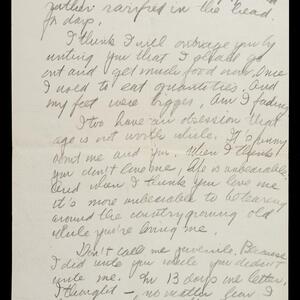 rather rarified in the head.
for days.
I think I will outrage you by
writing you that I please go
out and get much food now. Once
I used to eat quantities. And
my feet were bigger. Am I fading
I too have an obsession that
age is not worth while. It's funny
about me and you. When I think
you don't love me, life is unbearable.
And when I think you love me
it's more unbearable to be tearing
around the country growing old
while you're loving me.
Don't call me juvenile, Because
I did write you while you didn't
write me. In 13 days one letter,
I thought —, no matter how I